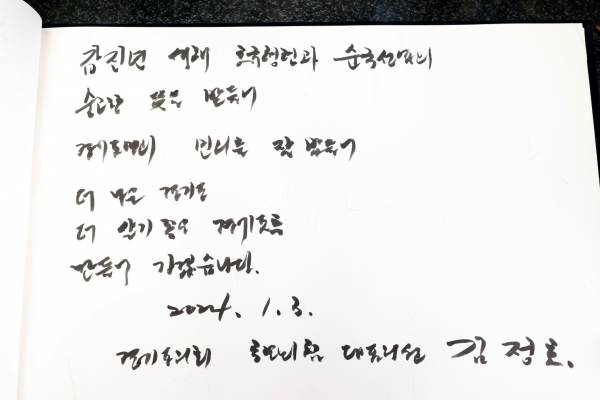 갑진년 새해 호국영령과 순국선열의
숭고한 뜻을 받들어
경기도민의 민의를 잘 받들어
더 나은 경기도
더 살기 좋은 경기도를
만들어 가겠습니다.
2024. 1. 3.
경기도의회 국민의힘 대표의원 김정호.